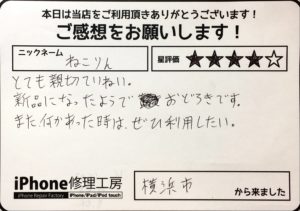 本日は当店をご利用頂きありがとうございます！
ご感想をお願いします！
ニックネーム ねこりん 星評価 ★★★★☆
とても親切ていねい。
新品になったようで おどろきです。
また何かあった時は、ぜひ利用したい。
iPhone修理工房 横浜市 から来ました
iPhone Repair Factory iPhone/iPad/iPod touch